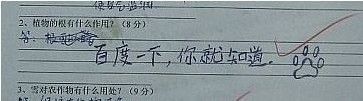 2、植物的根有什么作用？（8分）
答：
百度一下，你就知道。
3、雪对农作物有什么用处？（9分）